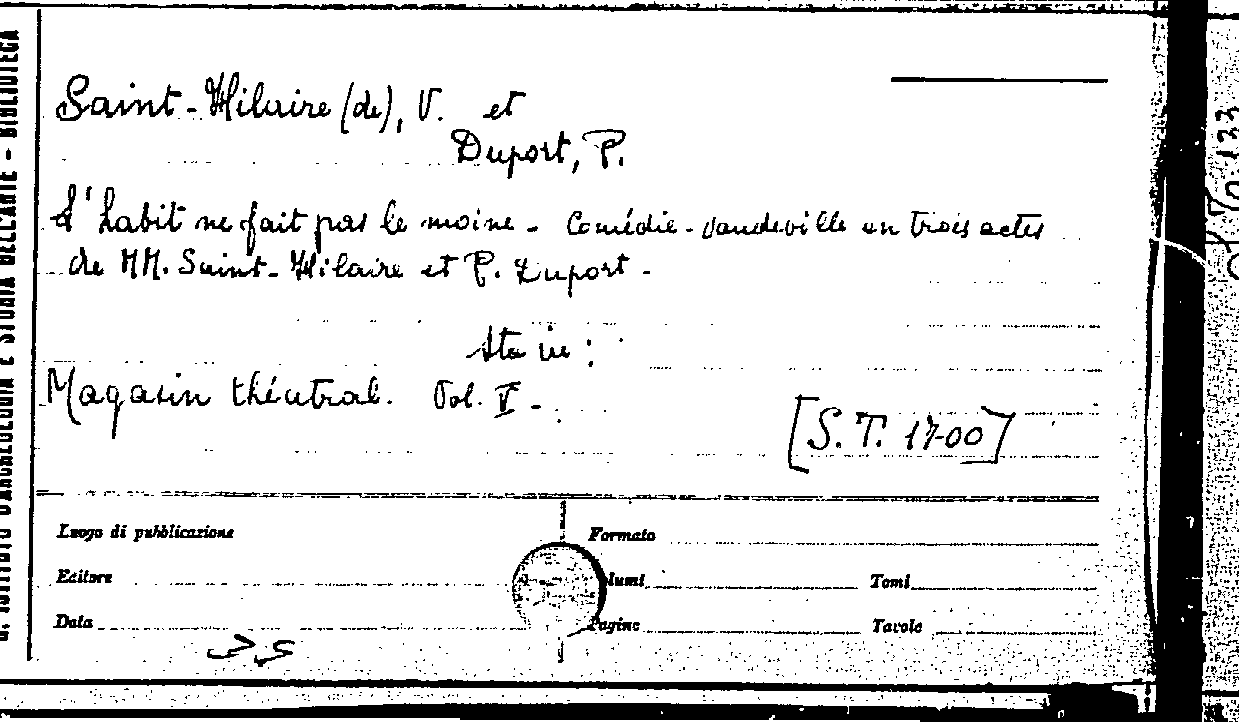 Saint-Hilaire (de), V. et
Duport, P.
L'habit ne fait pas le moine - Comédie-vaudeville en trois actes
de MM. Saint-Hilaire et P. Duport -
Sta in:
Magasin théatral. Vol. V -
[S. T. 17-00]
Luogo di pubblicazione
Formato
Editore
lumi
Tomi
Data
Pagine
Tavole
ISTITUTO D'ARCHEOLOGIA E STORIA DELL'ARTE - BIBLIOTECA